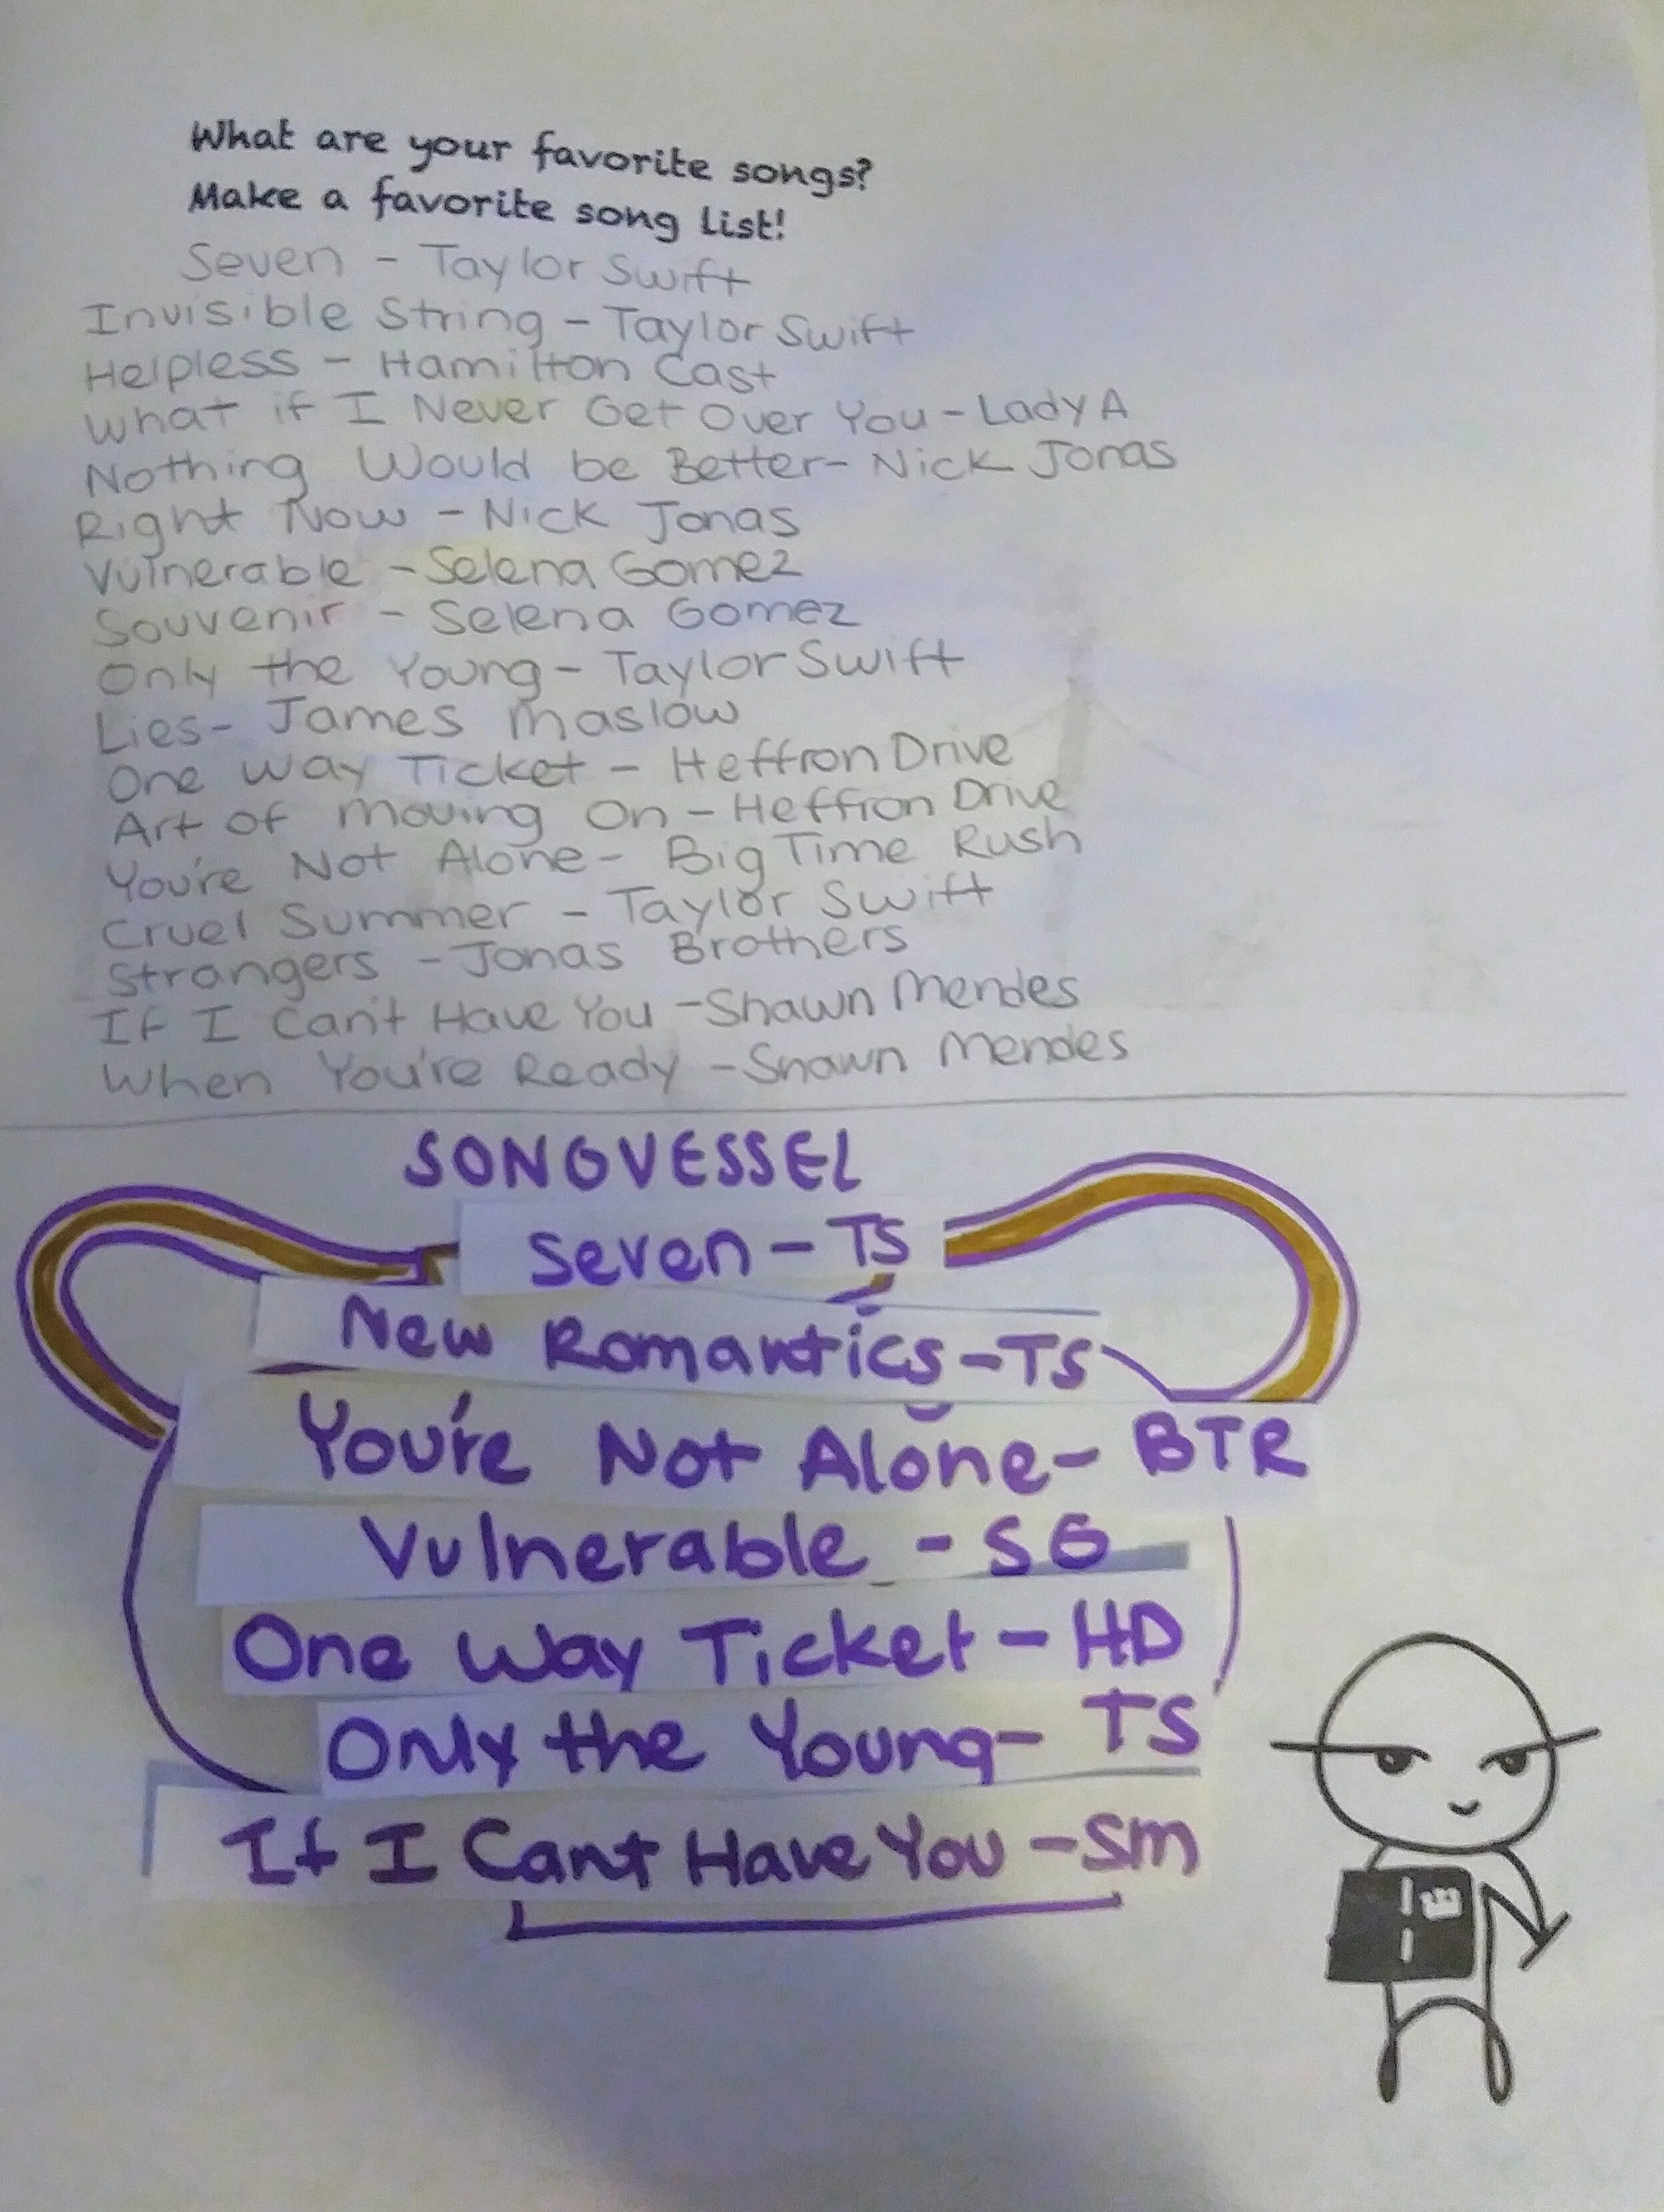 What are your favorite songs?
Make a favorite song list!
Seven - Taylor Swift
Invisible String - Taylor Swift
Helpless - Hamilton Cast
What if I Never Get Over You - Lady A
Nothing Would be Better - Nick Jonas
Right Now - Nick Jonas
Vulnerable - Selena Gomez
Souvenir - Selena Gomez
Only the Young - Taylor Swift
Lies - James Maslow
One Way Ticket - Heffron Drive
Art of Moving On - Heffron Drive
You're Not Alone - Big Time Rush
Cruel Summer - Taylor Swift
Strangers - Jonas Brothers
If I Can't Have You - Shawn Mendes
When You're Ready - Shawn Mendes
SONGVESSEL
Seven - TS
New Romantics - TS
You're Not Alone - BTR
Vulnerable - SG
One Way Ticket - HD
Only the Young - TS
If I Cant Have You - SM